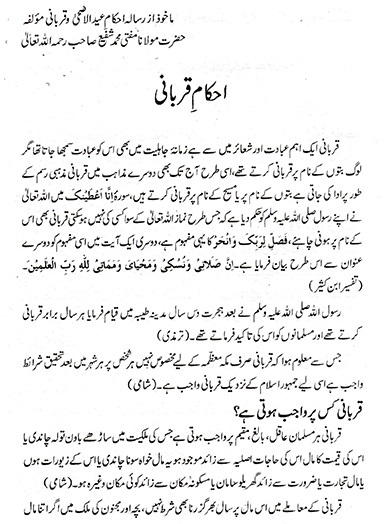 ماخوذ از رسالہ احکام عید الاضحیٰ و قربانی مؤلفہ
حضرت مولانا مفتی محمد شفیع صاحب رحمہ اللہ تعالیٰ
احکامِ قربانی
قربانی ایک اہم عبادت اور شعائر میں سے ہے زمانۂ جاہلیت میں بھی اس کو عبادت سمجھا جاتا تھا مگر
لوگ بتوں کے نام پر قربانی کرتے تھے، اسی طرح آج تک بھی دوسرے مذاہب میں قربانی مذہبی رسم کے
طور پر ادا کی جاتی ہے بتوں کے نام پر یا مسیح کے نام پر قربانی کرتے ہیں، سورۂ اِنَّا اَعْطَیْنٰکَ میں اللہ تعالیٰ
نے اپنے رسول صلی اللہ علیہ وسلم کو حکم دیا ہے کہ جس طرح نماز اللہ تعالیٰ کے سوا کسی کی نہیں ہو سکتی قربانی بھی اس
کے نام پر ہونی چاہئے، فَصَلِّ لِرَبِّکَ وَانْحَرْ کا یہی مفہوم ہے، دوسری ایک آیت میں اسی مفہوم کو دوسرے
عنوان سے اس طرح بیان فرمایا ہے۔ اِنَّ صَلَاتِیْ وَنُسُکِیْ وَمَحْیَایَ وَمَمَاتِیْ لِلّٰهِ رَبِّ الْعٰلَمِیْنَ۔
(تفسیر ابن کثیر)
رسول اللہ صلی اللہ علیہ وسلم نے بعد ہجرت دس سال مدینہ طیبہ میں قیام فرمایا ہر سال برابر قربانی
کرتے تھے اور مسلمانوں کو اس کی تاکید فرماتے تھے۔ (ترمذی)
جس سے معلوم ہوا کہ قربانی صرف مکہ معظمہ کے لیے مخصوص نہیں ہر شخص پر ہر شہر میں بعد تحقیق شرائط
واجب ہے اسی لیے جمہور اسلام کے نزدیک قربانی واجب ہے۔ (شامی)
قربانی کس پر واجب ہوتی ہے؟
قربانی ہر مسلمان عاقل، بالغ، مقیم پر واجب ہوتی ہے جس کی ملکیت میں ساڑھے باون تولہ چاندی یا
اس کی قیمت کا مال اس کی حاجات اصلیہ سے زائد موجود ہو یہ مال خواہ سونا چاندی یا اس کے زیورات ہوں
یا مال تجارت یا ضرورت سے زائد گھریلو سامان یا مسکونہ مکان سے زائد کوئی مکان وغیرہ ہو۔ (شامی)
قربانی کے معاملے میں اس مال پر سال بھر گزرنا بھی شرط نہیں، بچہ اور مجنون کی ملک میں اگر اتنا مال